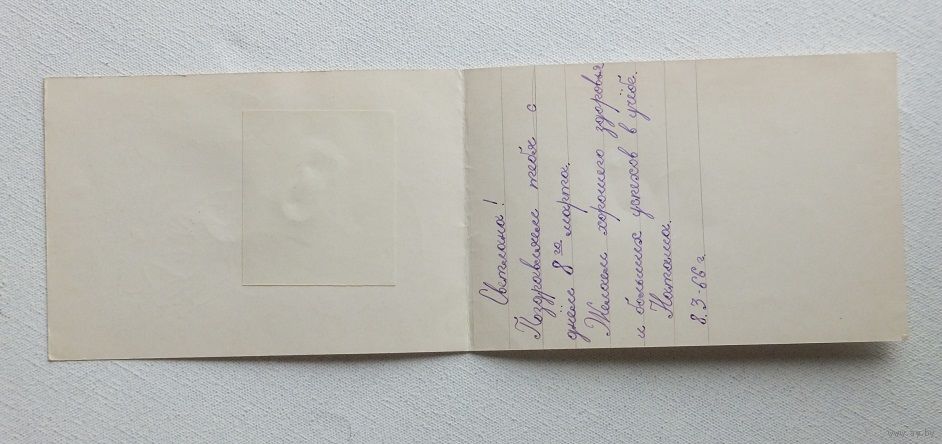 Светлана!
Поздравляем тебя с
днём 8 за марта.
Желаем хорошего здоровья
и больших успехов в учёбе.
Наташа.
8.3-66 г.
www.ay.by